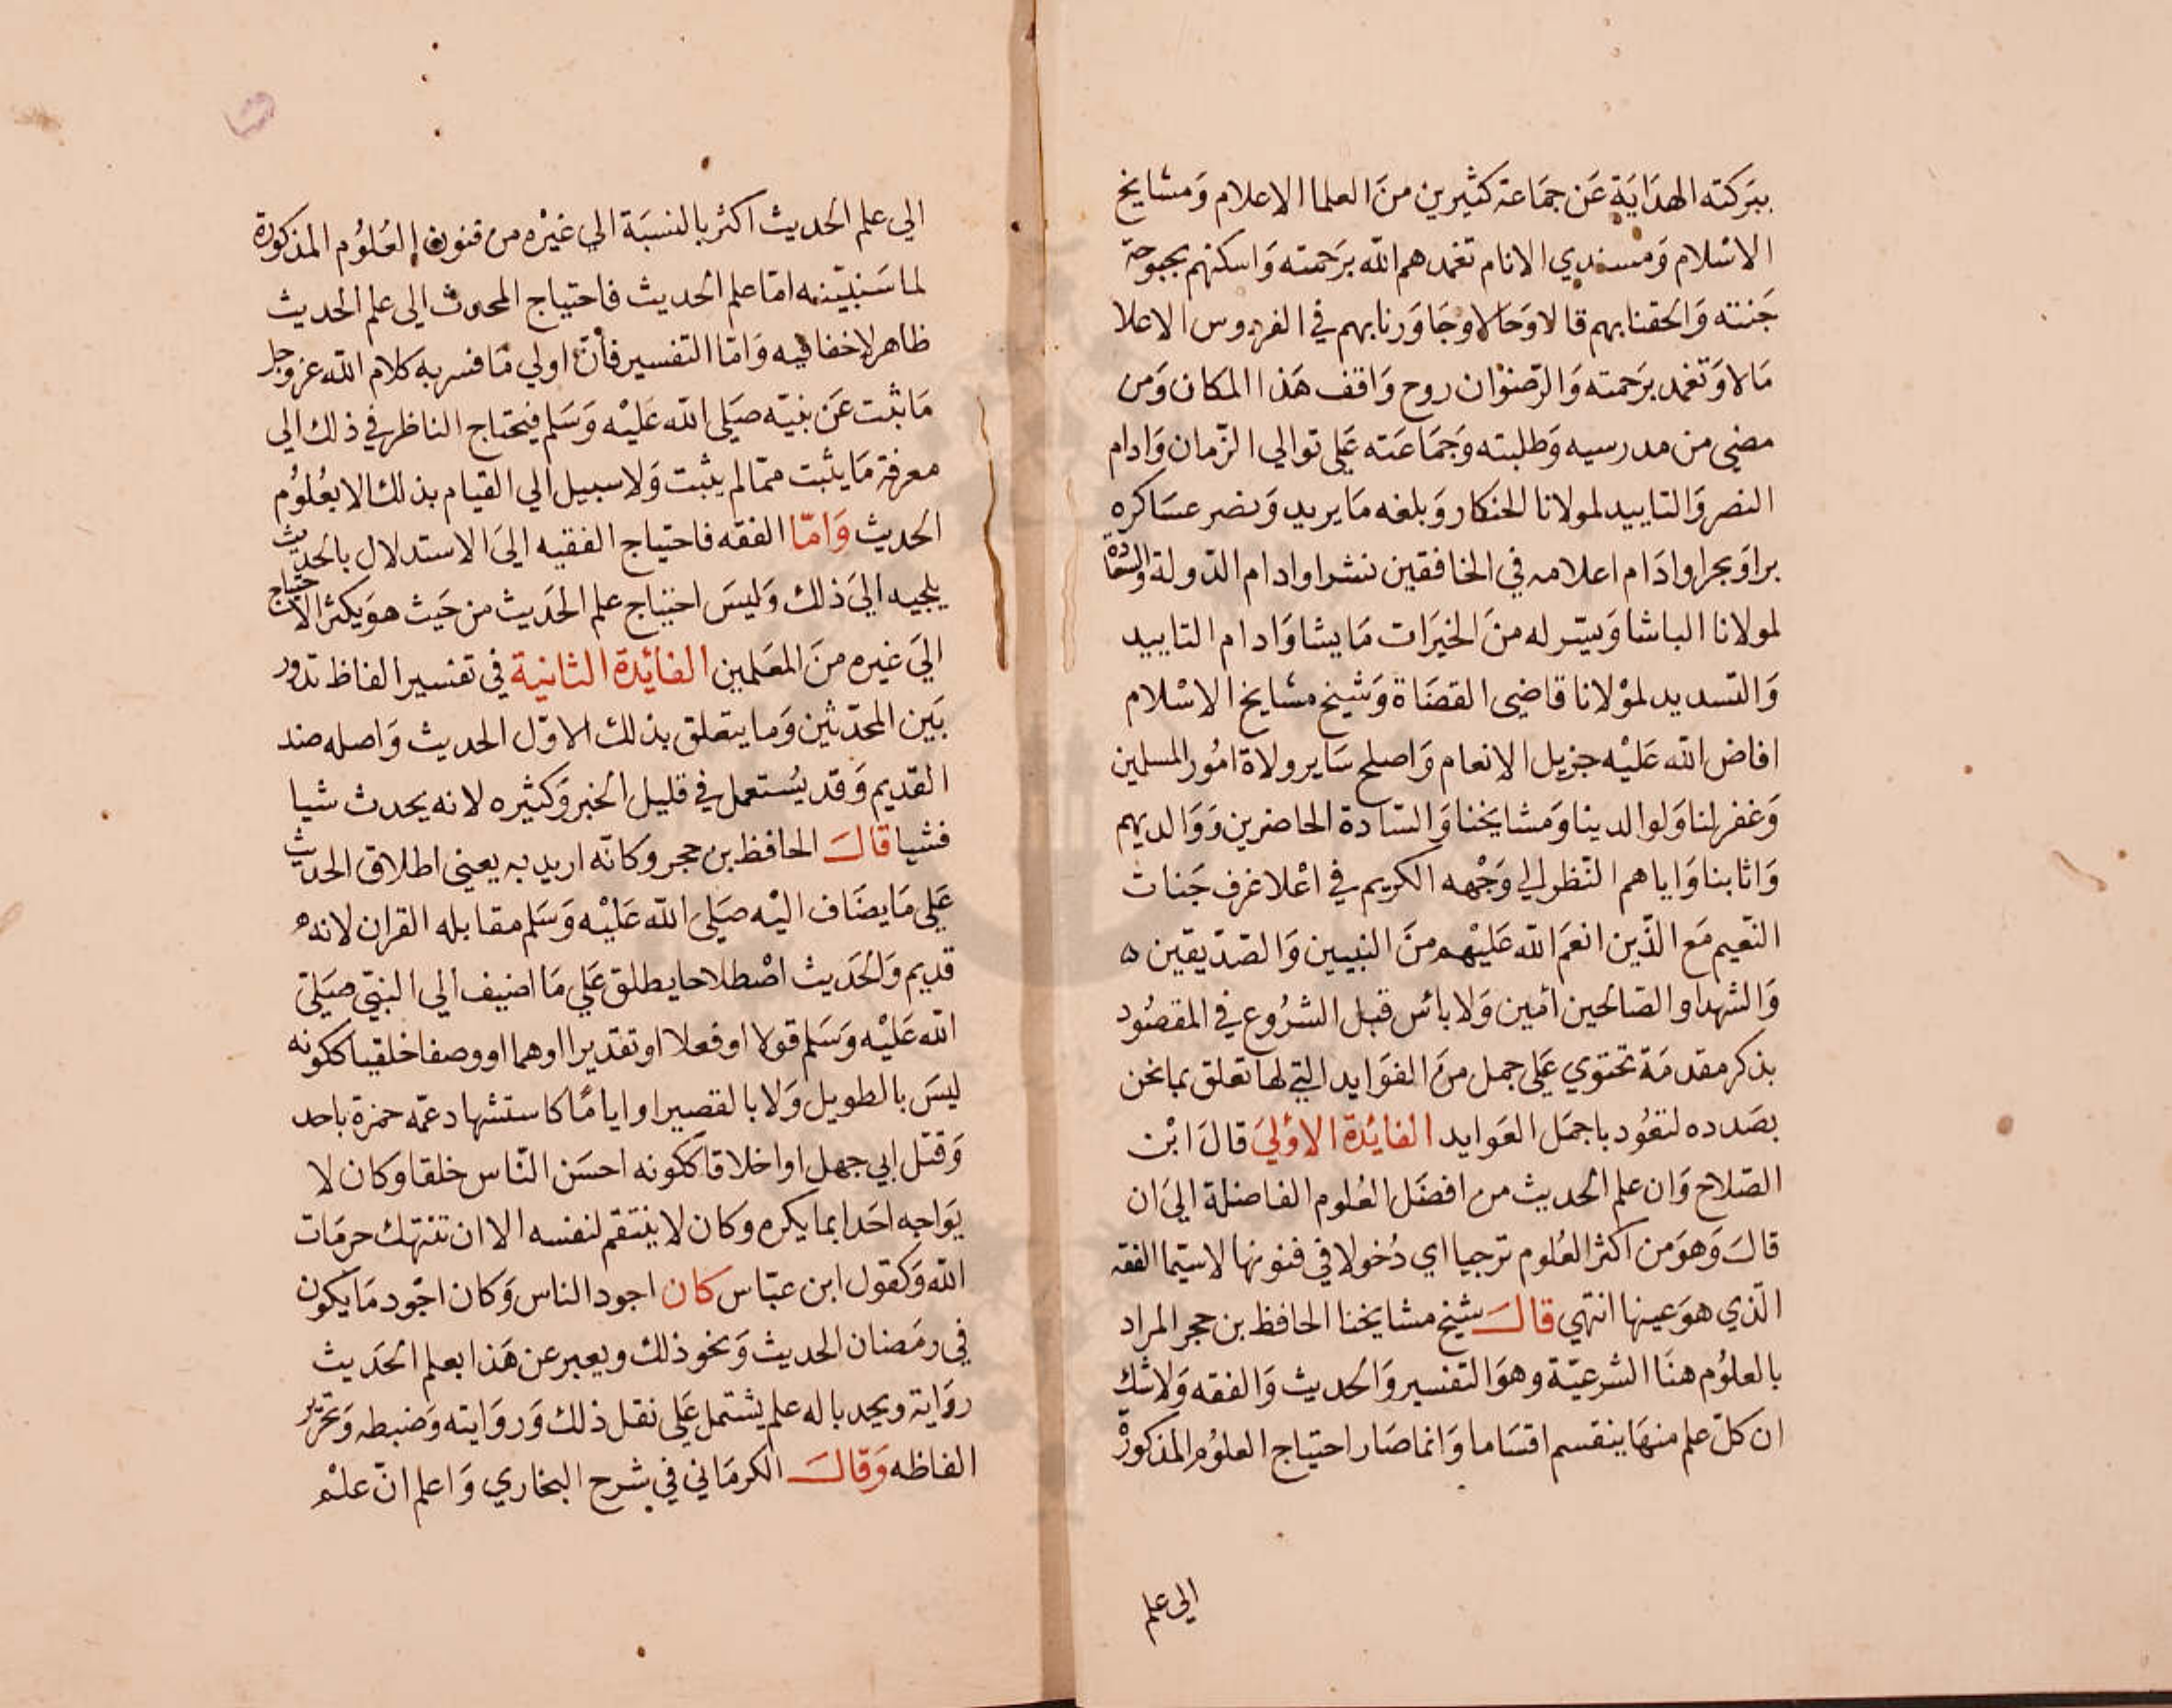 ببَركته الهدَايَة عَن جمَاعة كثيرين منَ العلما الاعلام وَمشايخ
الاسْلام وَمسندي الانام تغمدهم الله برَحمته وَاسكنهم بحبوحة
جَنته وَالحقنا بهم قالا وَحَالا وجَاوَرنا بهم في الفردوس الاعلا
مَالا وَتغمد برَحمته وَالرّضوْان روح وَاقف هَذا المكان وَمن
مضى من مدرسيه وَطلبته وَجمَاعَته عَلى توالي الزّمان وَادام
النصر وَالتاييد لمولانا الخنكار وَبلغه مَا يريد وَنصر عسَاكره
برا وَبحرا وادَام اعلامه في الخافقين نشرا وادام الدّولة والسّعادة
لمولانا الباشا وَيسّر له منَ الخيرَات مَا يشا وَادام التاييد
وَالتسديد لموْلانا قاضي القضَاة وَشيخ مشايخ الاسْلام
افاض الله عَليْه جزيل الانعام وَاصلح سَاير ولاة امُور المسلمين
وَغفر لنا وَلوالدينا وَمشايخنا وَالسّادة الحاضرين وَوَالديهم
وَاثابنا وَاياهم النّظر الي وَجْهه الكريم في اعْلا غرف جَنات
النّعيم مَع الذّين انعَم الله عَليْهم منَ النبيين وَالصّدّيقين ه
وَالشهدا والصّالحين امين وَلا باس قبل الشرُوع في المقصُود
بذكر مقدمَة تحتوي عَلى جمل منَ الفوَايد التي لها تعلق بما نحن
بصَدده لنعُود باجمَل العوَايد الفائدة الاوْلي قالَ ابْن
الصّلاح وَان علم الحديث من افضَل العُلوم الفاضلة اليَ ان
قالَ وَهوَ من اكثر العُلوم ترجيا اي دُخولا في فنونها لاسيّما الفقه
الّذي هوَ عينها انتهي قالَ شيخ مشايخنا الحافظ بن حجر المراد
بالعلوُم هنَا الشرعيّة وهوَ التفسير وَالحديث وَالفقه وَلا شك
ان كلّ علم منهَا ينقسم اقسَاما وَانما صَار احتياج العلوُم المذكورة
الي علم
الي علم الحديث اكثر بالنسبَة الي غيْره من فنون العُلوُم المذكورة
لما سَنبيّنه امّا علم الحديث فاحتياج المحدث الي علم الحديث
ظاهر لا خفا فيه وَامّا التفسير فأنّ اولي مَا فسر به كلام الله عز وجل
مَا ثبت عَن نبيّه صَلى الله عَليْه وَسَلم فيحتاج الناظر في ذلك الي
معرفة مَا يثبت ممّا لم يثبت وَلا سبيل الي القيام بذلك الا بعُلوُم
الحديث وَامّا الفقه فاحتياج الفقيه اليَ الاستدلال بالحديث
يلجيه اليَ ذلك وَليسَ احتياج علم الحَديث من حَيث هوَ يكثر الاحتياج
اليَ غيره منَ المعَلمين الفائدة الثانية في تفسير الفاظ تدور
بَين المحدّثين وَما يتعلق بذلك الاوّل الحديث وَاصله ضد
القديم وَقد يُستعمل في قليل الخبر وَكثيره لانه يحدث شيا
فشيا قالَ الحافظ بن حجر وكانّه اريد به يعني اطلاق الحديث
عَلي مَا يضَاف اليْه صَلى الله عَليْه وَسَلم مقابله القران لانه
قديم وَالحَديث اصْطلاحا يطلق عَلي مَا اضيف الي النبيّ صَلى
الله عَليْه وَسَلم قولا او فعلا او تقديرا او هما او وصفا خلقيا ككونه
ليسَ بالطويل وَلا بالقصير او ايامًا كاستشهاد عمّه حمزة باحد
وَقتل ابي جهل او اخلاقا ككونه احسَن النّاس خلقا وكان لا
يوَاجه احَدا بما يكره وكان لا ينتقم لنفسه الا ان تنتهك حرمَات
الله وَكقول ابن عبّاس كان اجود الناس وَكان اجّود مَا يكون
في رمَضان الحديث وَنحو ذلك ويعبر عن هَذا بعلم الحَديث
روَاية ويحد باله علم يشتمل عَلى نقل ذلك وَروَايته وَضبطه وَتحرير
الفاظه وَقالَ الكرمَاني في شرح البخاري وَاعلم انّ علْم